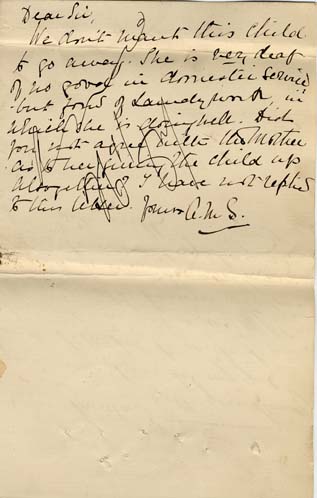 Dear Sir,
We don't want this child
to go away. She is very deaf
of no good in domestic service
but fond of Laundry work, in
which she is doing well. Did
you not agree with the Mother
as to her giving the child up
altogether? I have not replied
to this letter. Yours